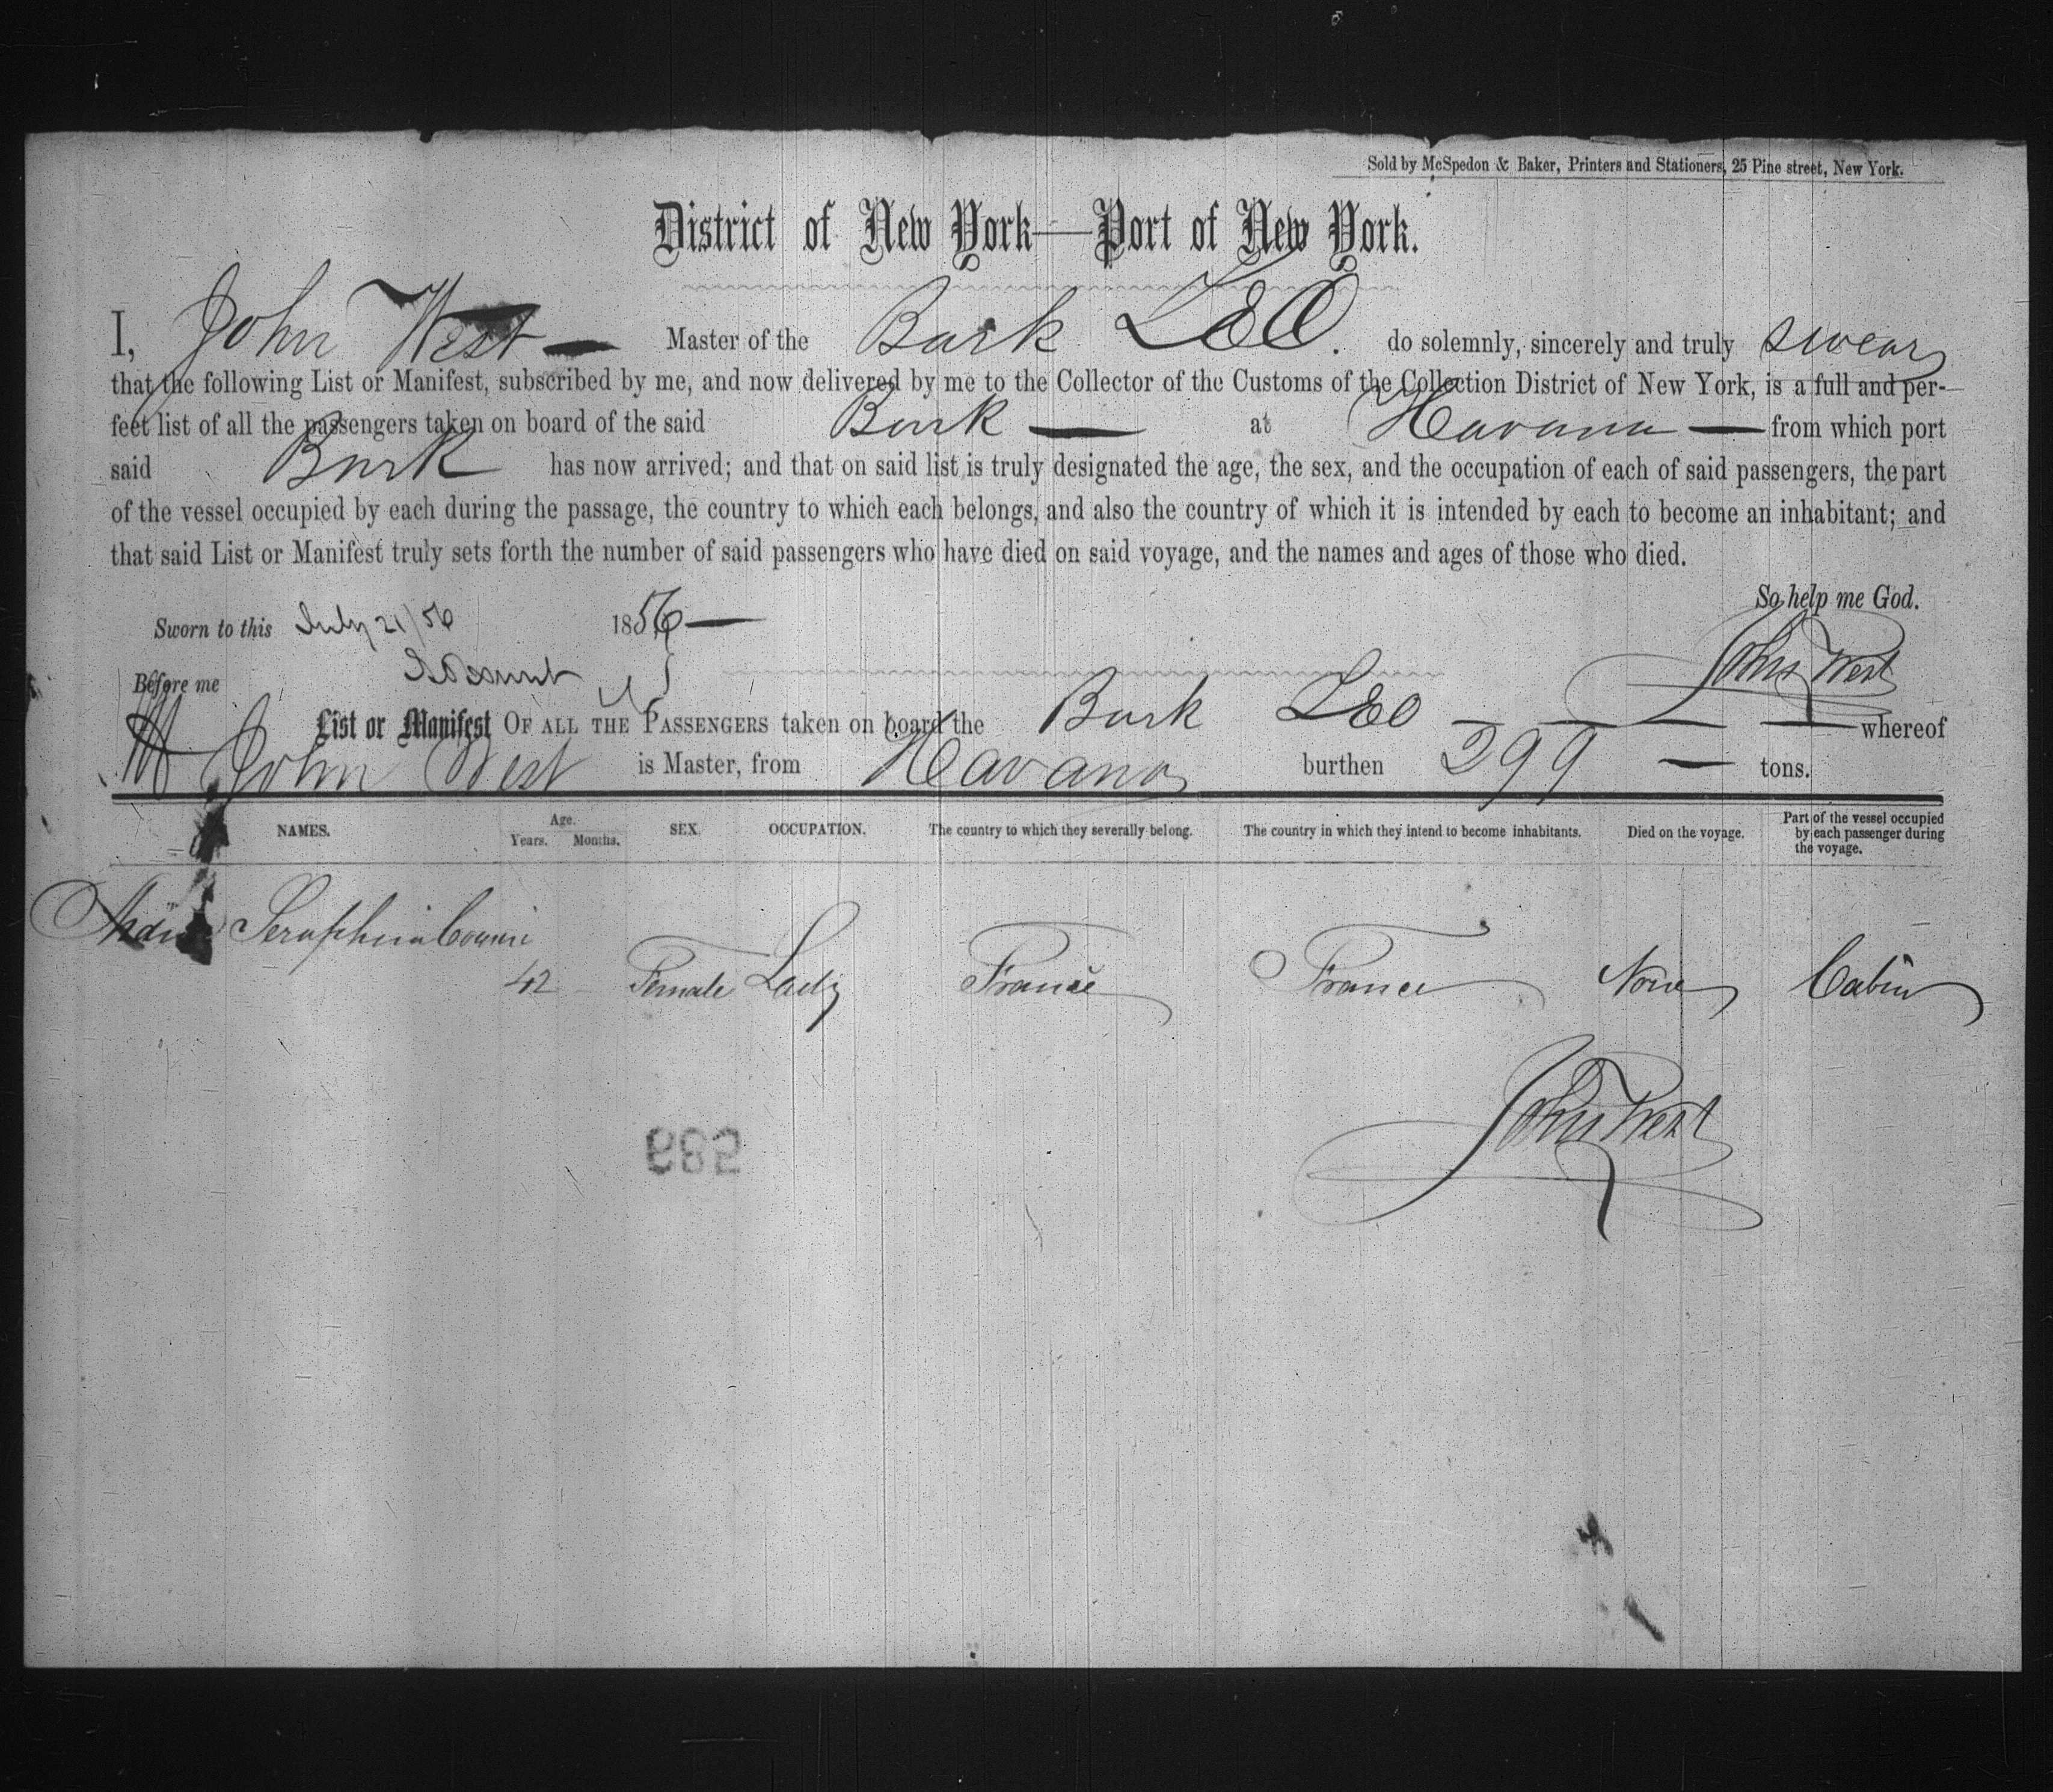 Sold by McSpedon & Baker, Printers and Stationers, 25 Pine street, New York.
District of New York—Port of New York.
I, John West — Master of the Bark LEO. do solemnly, sincerely and truly swear
that the following List or Manifest, subscribed by me, and now delivered by me to the Collector of the Customs of the Collection District of New York, is a full and per-
fect list of all the passengers taken on board of the said Bark — at Havana — from which port
said Bark has now arrived; and that on said list is truly designated the age, the sex, and the occupation of each of said passengers, the part
of the vessel occupied by each during the passage, the country to which each belongs, and also the country of which it is intended by each to become an inhabitant; and
that said List or Manifest truly sets forth the number of said passengers who have died on said voyage, and the names and ages of those who died.
So help me God.
Sworn to this July 21/56 1856 —
John West
Before me
List or Manifest OF ALL THE PASSENGERS taken on board the Bark LEO — — — — whereof
John West is Master, from Havana burthen 299 — tons.
NAMES. Age. Years. Months. SEX. OCCUPATION. The country to which they severally belong. The country in which they intend to become inhabitants. Died on the voyage. Part of the vessel occupied by each passenger during the voyage.
Seraphein
42 Female Lady France France None Cabin
John West